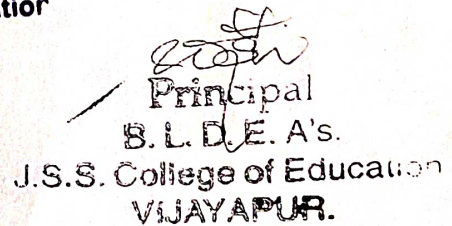 Principal
B. L. D. E. A's.
J.S.S. College of Education
VIJAYAPUR.